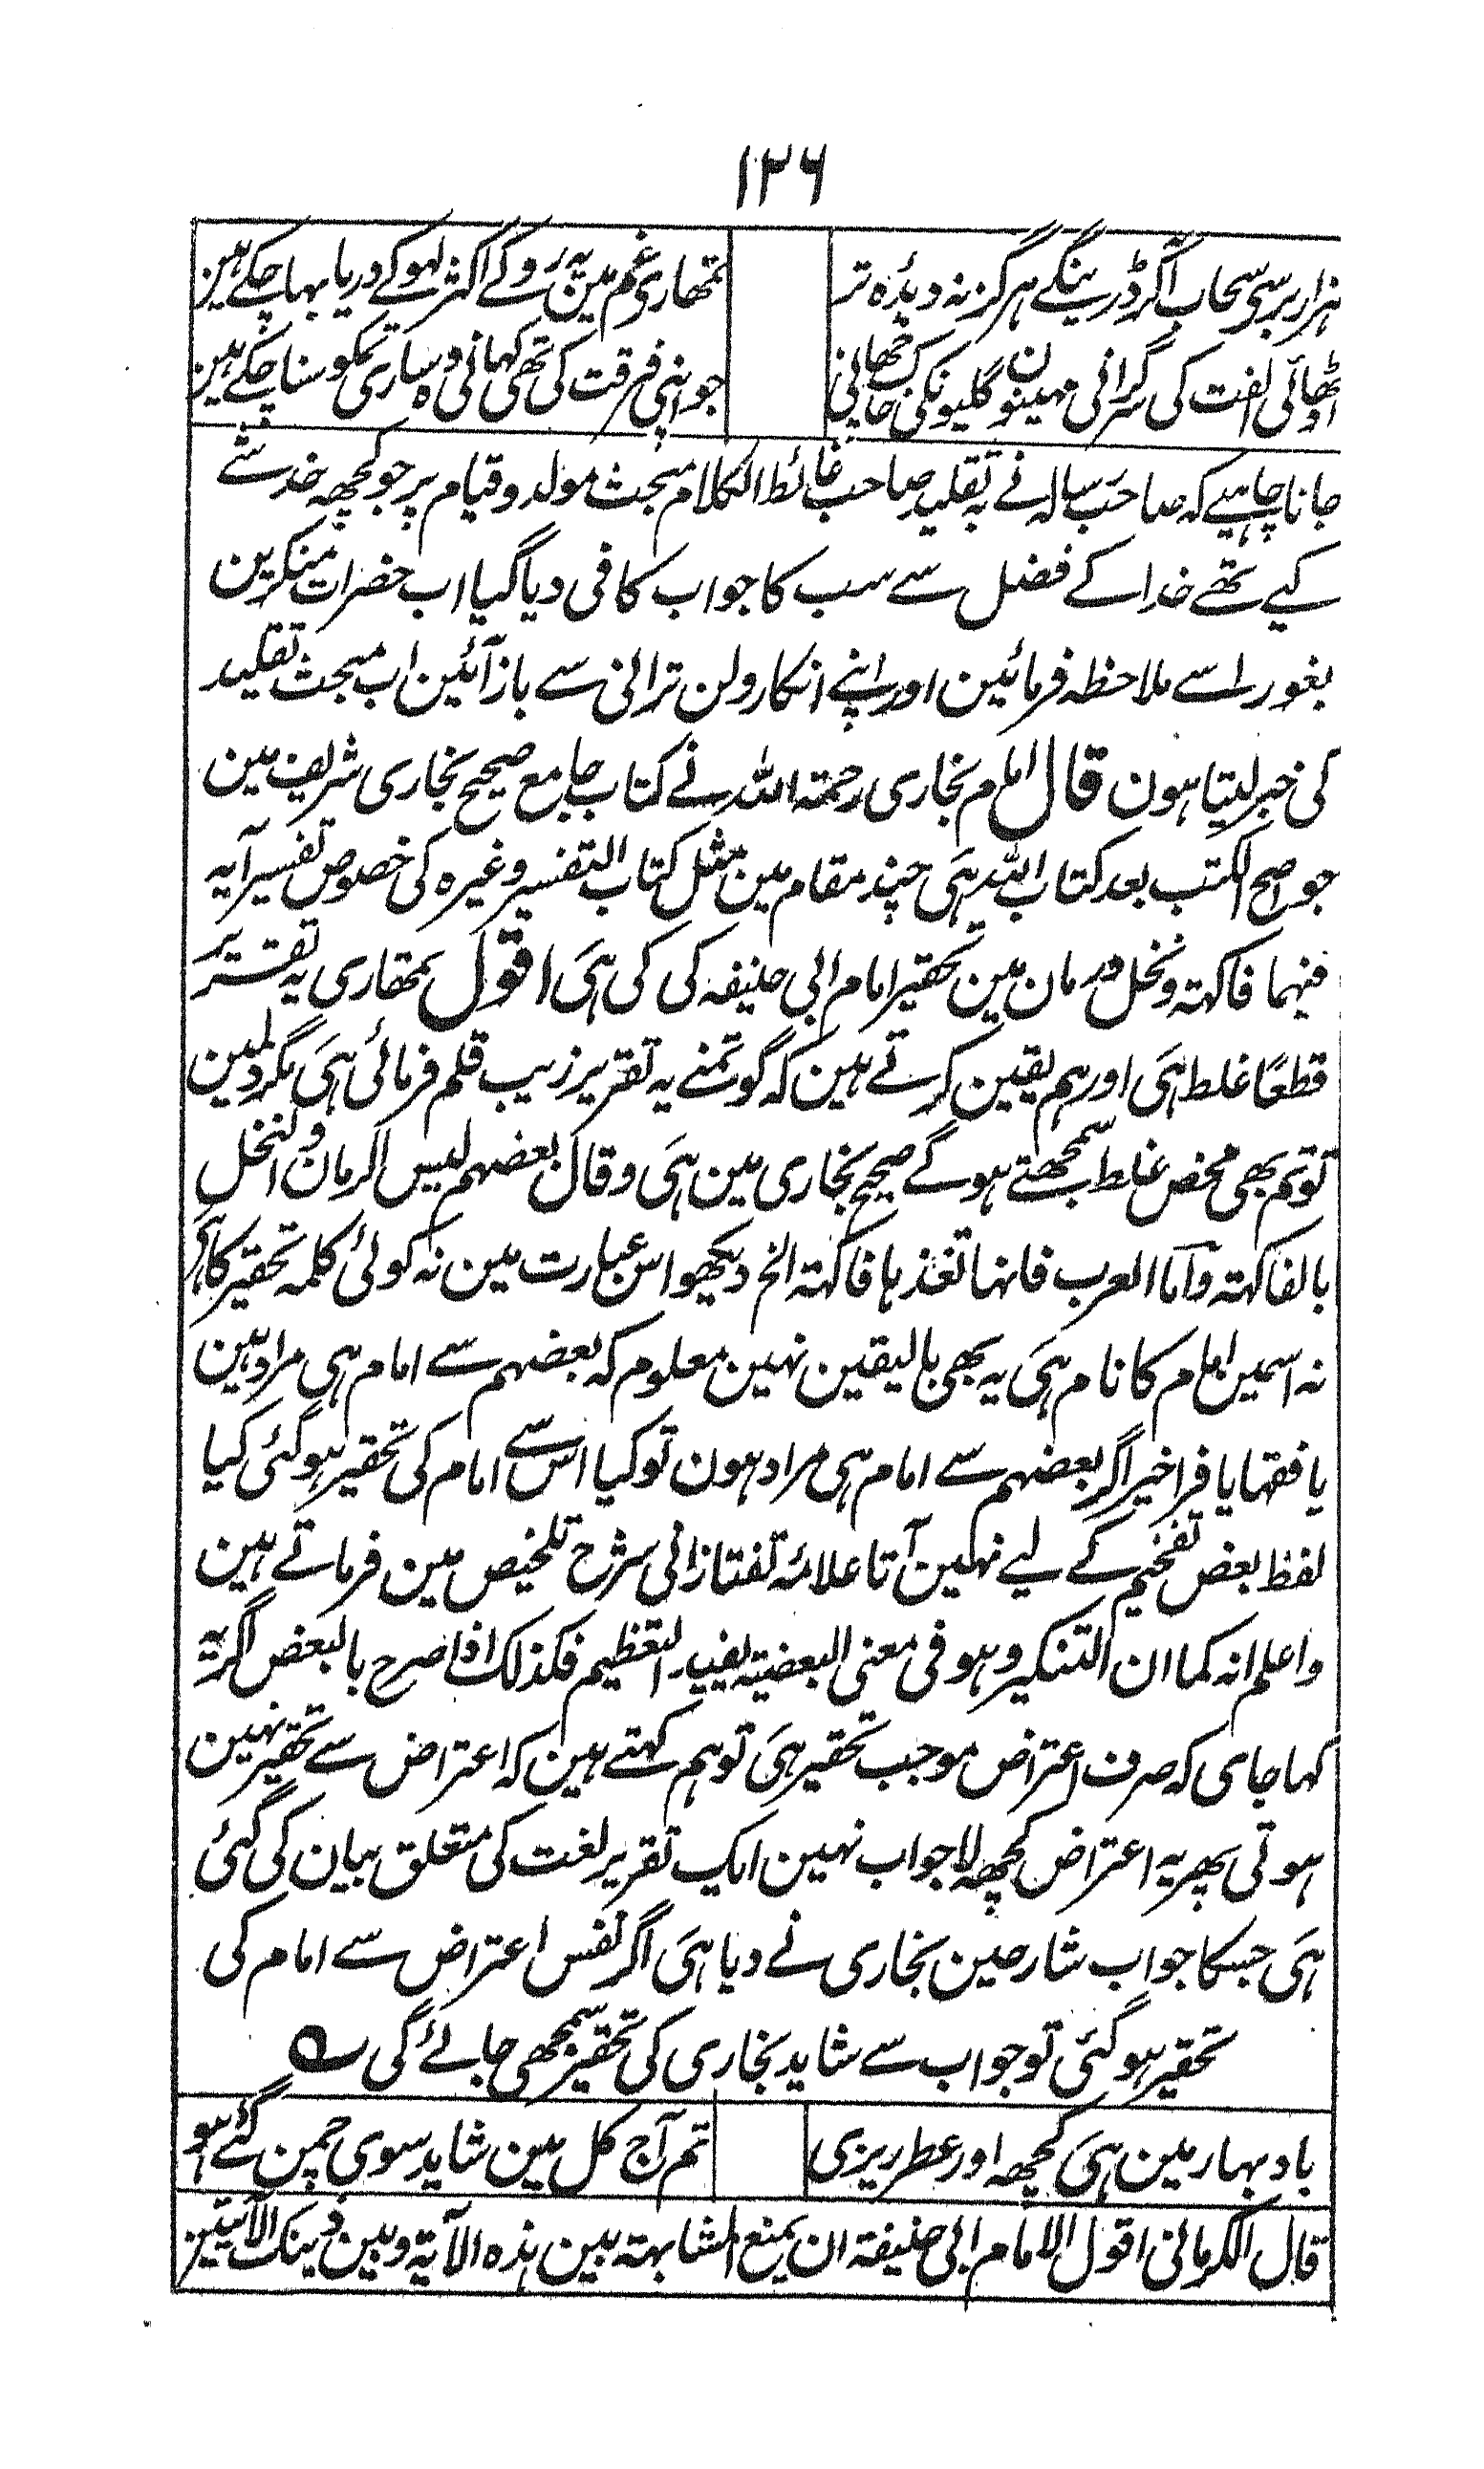 ۱۲۶
ہزار برسی سحاب اگر ڈرینگے ہرگز نہ دیدۂ تر
تمھاری غم مین یہ روکے اکثر لہو کے دریا بہا چکے ہین
اوٹھائی الفت کی سرگرانی مہینون گلیونکی خاک چھانی
جو اپنی فرقت کی تھی کہانی وہ ساری تمکو سنا چکے ہین
جانا چاہیے کہ صاحب رسالہ نے بہ تقلید صاحب غائط الکلام مبحث مولد و قیام پر جو کچھ خدشے
کیے تھے خدا کے فضل سے سب کا جواب کافی دیا گیا اب حضرات منکرین
بغور اسے ملاحظہ فرمائین اور اپنے انکار ولن ترانی سے باز آئین اب مبحث تقلید
کی خبر لیتا ہون قال امام بخاری رحمتہ اللہ نے کتاب جامع صحیح بخاری شریف مین
جو اصح الکتب بعد کتاب اللہ ہَی چند مقام مین مثل کتاب التفسیر وغیرہ کی خصوص تفسیر آیہ
فیہما فاکہتہ ونخل ورمان مین تحقیر امام ابی حنیفہ کی کی ہَی اقول تمھاری یہ تقریر
قطعًا غلط ہَی اور ہم یقین کرتے ہین کہ گو تمنے یہ تقریر زیب قلم فرمائی ہَی مگر دلمین
تو تم بھی محض غلط سمجھتے ہوگے صحیح بخاری مین ہَی وقال بعضہم لیس الرمان والنخل
بالفاکہتہ وآما العرب فانہا تغذہا فاکہتہ الخ دیکھو اس عبارت مین نہ کوئی کلمہ تحقیر کا ہَی
نہ اسمین امام کا نام ہَی یہ بھی بالیقین نہین معلوم کہ بعضہم سے امام ہی مراد ہین
یا فقہا یا فرا خیر اگر بعضہم سے امام ہی مراد ہون تو کیا اس سے امام کی تحقیر ہوگئی کیا
لفظ بعض تفخیم کے لیے نہین آتا علامۂ تفتازانی شرح تلخیص مین فرماتے ہین
واعلم انہ کما ان التنکیر وہو فی معنی البعضیتہ یفید التعظیم فکذلک اذا صرح بالبعض اگر یہ
کہا جای کہ صرف اعتراض موجب تحقیر ہَی تو ہم کہتے ہین کہ اعتراض سے تحقیر نہین
ہوتی پھر یہ اعتراض کچھ لاجواب نہین ایک تقریر لغت کی متعلق بیان کی گئی
ہَی جسکا جواب شارحین بخاری نے دیا ہَی اگر نفس اعتراض سے امام کی
تحقیر ہوگئی تو جواب سے شاید بخاری کی تحقیر سمجھی جائے گی ؎
باد بہار مین ہَی کچھ اور عطر ریزی
تم آج کل مین شاید سوی چمن گئے ہو
قال الکرمانی اقول الامام ابی حنیفۃ ان یمنع المشابہتہ بین ہذہ الآیۃ وبین ذینک الآیتین